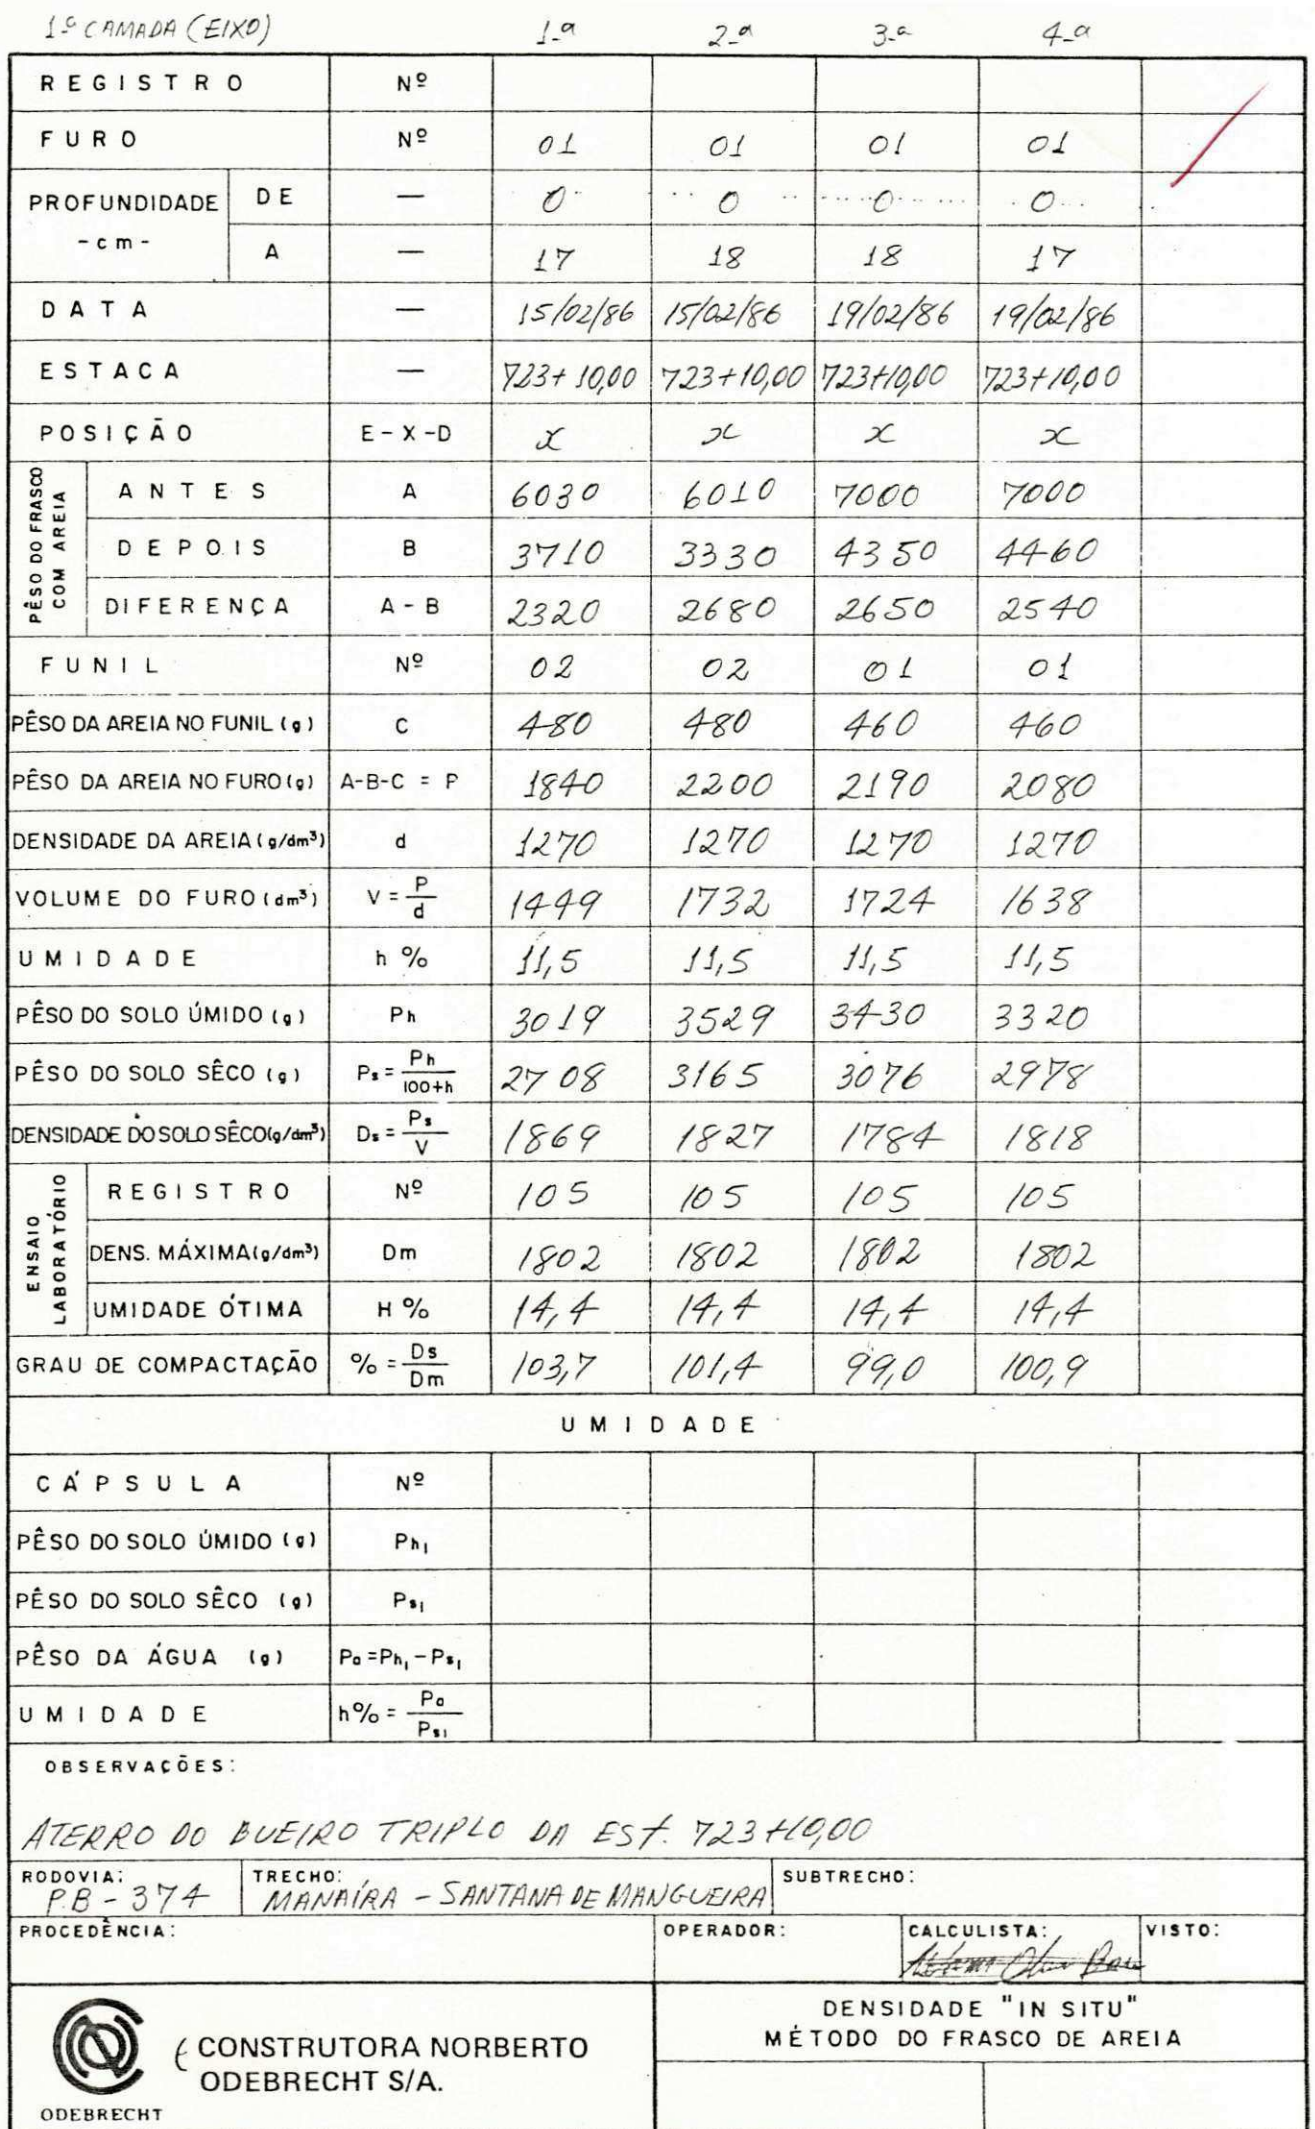 1ª CAMADA (EIXO) 1-a 2-a 3-a 4-a
REGISTRO Nº
FURO Nº 01 01 01 01
PROFUNDIDADE -cm- DE — 0 0 0 0
A — 17 18 18 17
DATA — 15/02/86 15/02/86 19/02/86 19/02/86
ESTACA — 723+10,00 723+10,00 723+10,00 723+10,00
POSIÇÃO E-X-D x x x x
PÊSO DO FRASCO COM AREIA
ANTES A 6030 6010 7000 7000
DEPOIS B 3710 3330 4350 4460
DIFERENÇA A-B 2320 2680 2650 2540
FUNIL Nº 02 02 01 01
PÊSO DA AREIA NO FUNIL (g) C 480 480 460 460
PÊSO DA AREIA NO FURO (g) A-B-C = P 1840 2200 2190 2080
DENSIDADE DA AREIA (g/dm³) d 1270 1270 1270 1270
VOLUME DO FURO (dm³) V = P/d 1449 1732 1724 1638
UMIDADE h % 11,5 11,5 11,5 11,5
PÊSO DO SOLO ÚMIDO (g) Ph 3019 3529 3430 3320
PÊSO DO SOLO SÊCO (g) Ps = Ph/100+h 2708 3165 3076 2978
DENSIDADE DO SOLO SÊCO (g/dm³) Ds = Ps/V 1869 1827 1784 1818
ENSAIO LABORATÓRIO
REGISTRO Nº 105 105 105 105
DENS. MÁXIMA (g/dm³) Dm 1802 1802 1802 1802
UMIDADE ÓTIMA H % 14,4 14,4 14,4 14,4
GRAU DE COMPACTAÇÃO % = Ds/Dm 103,7 101,4 99,0 100,9
UMIDADE
CÁPSULA Nº
PÊSO DO SOLO ÚMIDO (g) Ph₁
PÊSO DO SOLO SÊCO (g) Ps₁
PÊSO DA ÁGUA (g) Pa = Ph₁ - Ps₁
UMIDADE h% = Pa/Ps₁
OBSERVAÇÕES:
ATERRO DO BUEIRO TRIPLO DA EST. 723+10,00
RODOVIA: TRECHO: SUBTRECHO:
PB-374 MANAÍRA - SANTANA DE MANGUEIRA
PROCEDÊNCIA: OPERADOR: CALCULISTA: VISTO:
DENSIDADE "IN SITU"
MÉTODO DO FRASCO DE AREIA
CONSTRUTORA NORBERTO
ODEBRECHT S/A.
ODEBRECHT